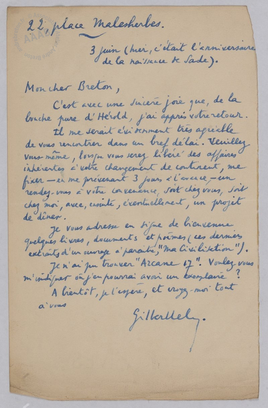 22, place Malesherbes.
3 juin (hier, c'était l'anniversaire
de la naissance de Sade).
Mon cher Breton,
C'est avec une sincère joie que, de la
bouche pure d'Hérold, j'ai appris votre retour.
Il me serait extrêmement très agréable
de vous rencontrer dans un bref délai. Veuillez
vous-même, lorsque vous serez libéré des affaires
inhérentes à votre changement de continent, me
fixer — en me prévenant 3 jours à l'avance — un
rendez-vous à votre convenance, soit chez vous, soit
chez moi, avec, ensuite, éventuellement, un projet
de dîner.
Je vous adresse en signe de bienvenue
quelques livres, documents et poèmes (ces derniers
extraits d'un ouvrage à paraître, "Ma civilisation").
Je n'ai pu trouver "Arcane 17". Voulez-vous
m'indiquer où j'en pourrai avoir un exemplaire ?
A bientôt, je l'espère, et croyez-moi tout
à vous